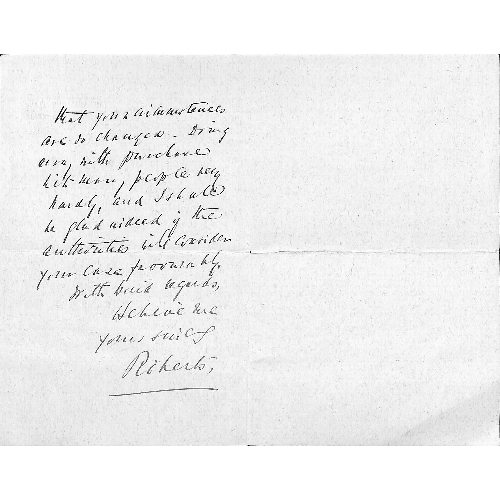 that your circumstances
are so changed - Doing
away with purchase
hit many people very
hardly, and I shall
be glad indeed if the
authorities will consider
your case favourably.
With kind regards,
Believe me
yours sincly
Roberts,